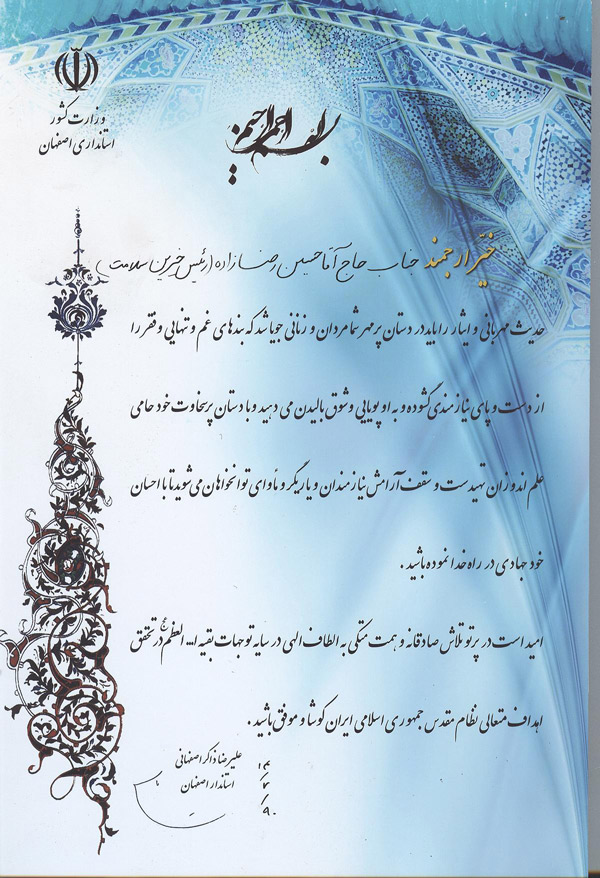 وزارت کشور
استانداری اصفهان
بسم الله الرحمن الرحیم
خیّر ارجمند جناب حاج آقا حسین رضازاده (رئیس خیرین سلامت)
حدیث مهربانی و ایثار را باید در دستان پر مهر شما مردان و زنانی جویا شد که بندهای غم و تنهایی و فقر را
از دست و پای نیازمندی گشوده و به او پویایی و شوق بالیدن می دهید و با دستان پر سخاوت خود حامی
علم اندوزان تهیدست و سقف آرامش نیازمندان و یاریگر و مأوای توانخواهان می شوید تا با احسان
خود جهادی در راه خدا نموده باشید .
امید است در پرتو تلاش صادقانه و همت متکی به الطاف الهی در سایه توجهات بقیه ا... العظم عج در تحقق
اهداف متعالی نظام مقدس جمهوری اسلامی ایران کوشا و موفق باشید .
علیرضا ذاکر اصفهانی
استاندار اصفهان